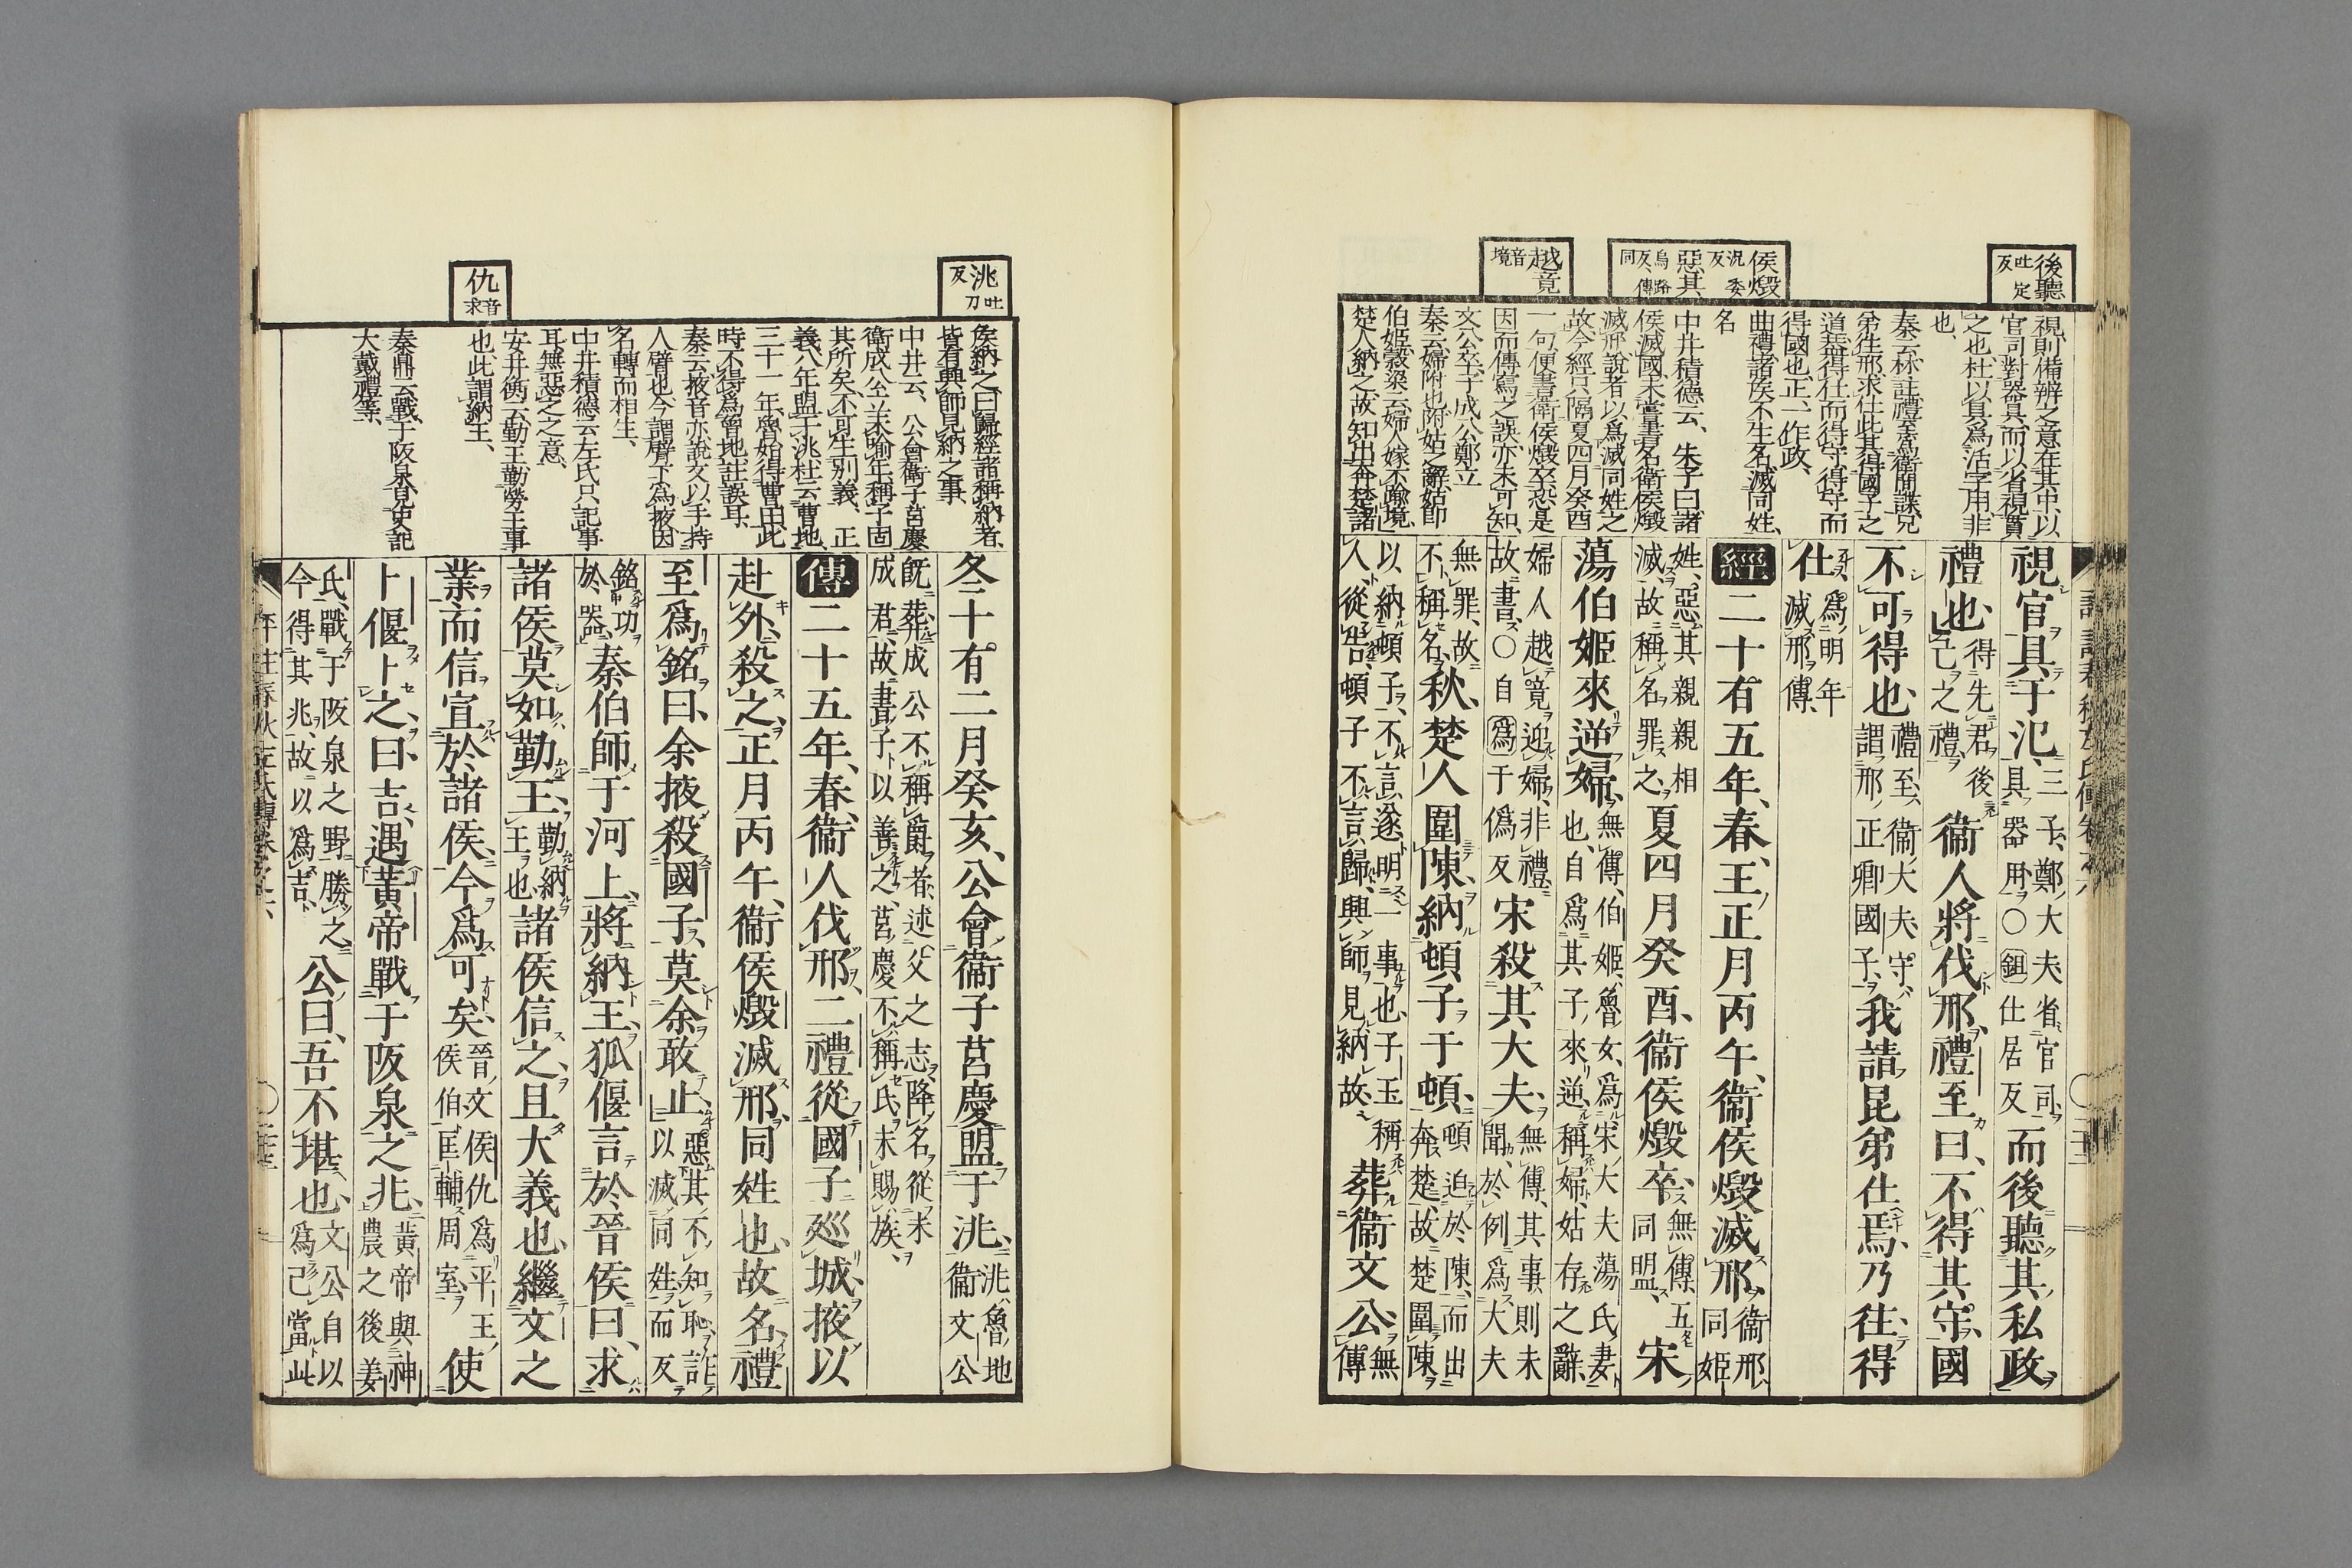 後聽
吐定反
侯燬
況委反
惡其
烏路反傳同
越竟
音境
視則備辨之意在其中以
官司對器具而以省視貫
之也杜以具爲活字用非
也
得國也正一作政
曲禮諸侯不生名滅同姓
名
中井積德云朱子曰諸
侯滅國未嘗書名衛侯燬
滅邢說者以爲滅同姓之
故今經只隔夏四月癸酉
一句便書衛侯燬卒恐是
因而傳寫之誤亦未可知
文公卒子成公鄭立
秦云婦附也附姑之辭姑卽
伯姬穀梁云婦人嫁不踰境
楚人納之故知出奔楚諸
視官具于氾三子鄭大夫省官司
具器用○鉏仕居反而後聽其私政
禮也得先君後
己之禮衛人將伐邢禮至曰不得其守國
不可得也禮至衛大夫守
謂邢正卿國子我請昆弟仕焉乃往得
仕爲明年
滅邢傳
經二十有五年春王正月丙午衛侯燬滅邢衛邢
同姬
姓惡其親親相
滅故稱名罪之夏四月癸酉衛侯燬卒無傳五
同盟宋
蕩伯姬來逆婦無傳伯姬魯女爲宋大夫蕩氏妻
也自爲其子來逆稱婦姑存之辭
婦人越竟迎婦非禮
故書○自爲于僞反宋殺其大夫無傳其事則未
聞於例爲大夫
無罪故
不稱名秋楚人圍陳納頓子于頓頓迫於陳而出
奔楚故楚圍陳
以納頓子不言遂明一事也子玉稱
人從告頓子不言歸興師見納故葬衛文公無
傳
洮
吐刀反
仇
音求
侯納之曰歸經諸稱納者
皆有興師見納之事
中井云公會衛子莒慶
衛成公未喻年稱子固
其所矣不可生別義正
義八年盟于洮杜云曹地
三十一年魯始得曹田此
時不得爲曾地註誤耳
秦云掖音亦說文以手持
人臂也今謂臂下爲掖因
名轉而相生
中井積德云左氏只記事
耳無惡之之意
安井衡云勤王勤勞王事
也此謂納王
秦鼎云戰于阪泉見史記
大戴禮等
冬十有二月癸亥公會衛子莒慶盟于洮洮魯地
衛文公
旣葬成公不稱爵者述父之志降名從未
成君故書子以善之莒慶不稱氏未賜族
傳二十五年春衛人伐邢二禮從國子巡城掖以
赴外殺之正月丙午衛侯燬滅邢同姓也故名禮
至爲銘曰余掖殺國子莫余敢止惡其不知恥詐
以滅同姓而反
銘功
於器秦伯師于河上將納王狐偃言於晉侯曰求
諸侯莫如勤王勤納
王也諸侯信之且大義也繼文之
業而信宣於諸侯今爲可矣晉文侯仇爲平王
侯伯匡輔周室使
卜偃卜之曰吉遇黃帝戰于阪泉之兆黃帝與神
農之後姜
氏戰于阪泉之野勝之
今得其兆故以爲吉公曰吾不堪也文公自以
爲己當此